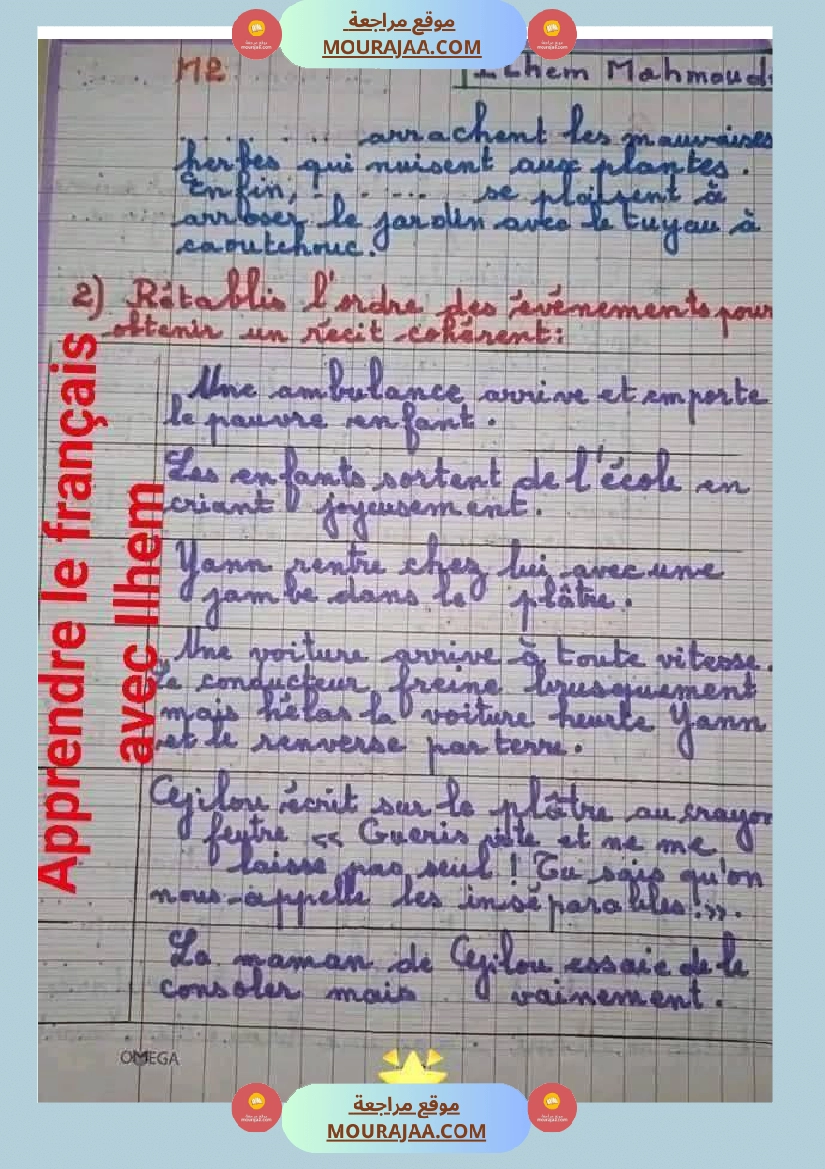 موقع مراجعة
MOURAJAA.COM
M2
Ilhem Mahmoudi
arrachent les mauvaises
herbes qui nuisent aux plantes.
Enfin, ........ se plaisent à
arroser le jardin avec le tuyau à
caoutchouc.
2) Rétablis l'ordre des événements pour
obtenir un récit cohérent:
Une ambulance arrive et emporte
le pauvre enfant.
Les enfants sortent de l'école en
criant joyeusement.
Yann rentre chez lui avec une
jambe dans le plâtre.
Une voiture arrive à toute vitesse.
Le conducteur freine brusquement
mais hélas la voiture heurte Yann
et le renverse par terre.
Cejilou écrit sur le plâtre au crayon
feutre « Guéris vite et ne me
laisse pas seul ! Tu sais qu'on
nous appelle les inséparables! ».
La maman de Cejilou essaie de le
consoler mais vainement.
Apprendre le français
avec Ilhem
OMEGA
موقع مراجعة
MOURAJAA.COM